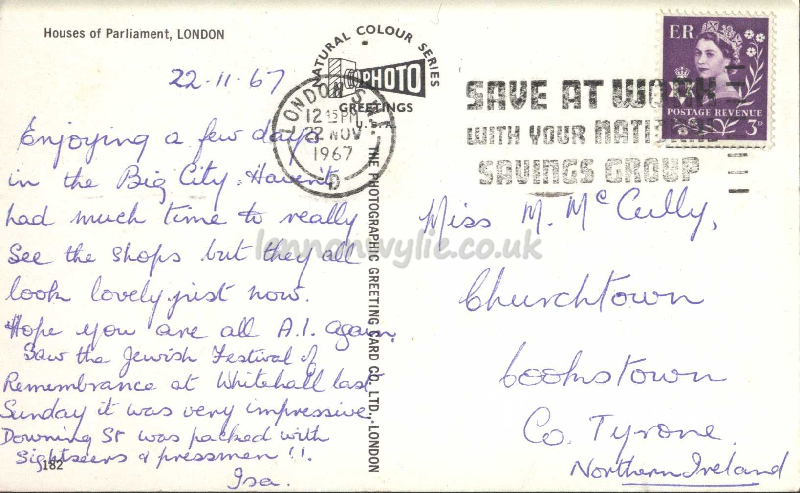 Houses of Parliament, LONDON
22.11.67
Enjoying a few days
in the Big City. Havent
had much time to really
see the shops but they all
look lovely just now.
Hope you are all A.1. again.
Saw the Jewish Festival of
Remembrance at Whitehall last
Sunday it was very impressive
Downing St was packed with
Sightseers & pressmen !!.
Isa.
182
NATURAL COLOUR SERIES
PHOTO
GREETINGS
THE PHOTOGRAPHIC GREETING CARD CO. LTD., LONDON
LONDON S.W.1.
12 15 PM
22 NOV
1967
SAVE AT WORK
WITH YOUR NATIONAL
SAVINGS GROUP
ER
POSTAGE REVENUE
3D
Miss M. McCully,
Churchtown
Cookstown
Co. Tyrone.
Northern Ireland
lennonwylie.co.uk